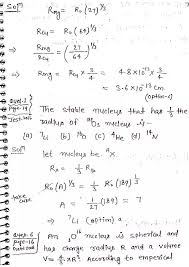 Solⁿ
R_Mg = R₀ (27)^1/3
R_Cu = R₀ (64)^1/3
⇒ R_Mg / R_Cu = (27/64)^1/3
⇒ R_Mg = R_Cu × 3/4 = 4.8×10⁻¹³ × 3/4
= 3.6×10⁻¹³ cm
(option-c)
The stable nucleus that has 1/3 the
radius of ¹⁸⁹Os nucleus is -
(a) ⁷Li (b) ¹⁶O (c) ⁴He (d) ¹⁴N
Solⁿ let nucleus be ᴬX
R_A = 1/3 R
R₀ (A)^1/3 = 1/3 R₀ (189)^1/3
A = 189/27 = 7
⇒ ⁷Li (option) a
Page-16 An O¹⁶ nucleus is spherical and
has charge radius R and a volume
V = 4/3 πR³. According to emperical